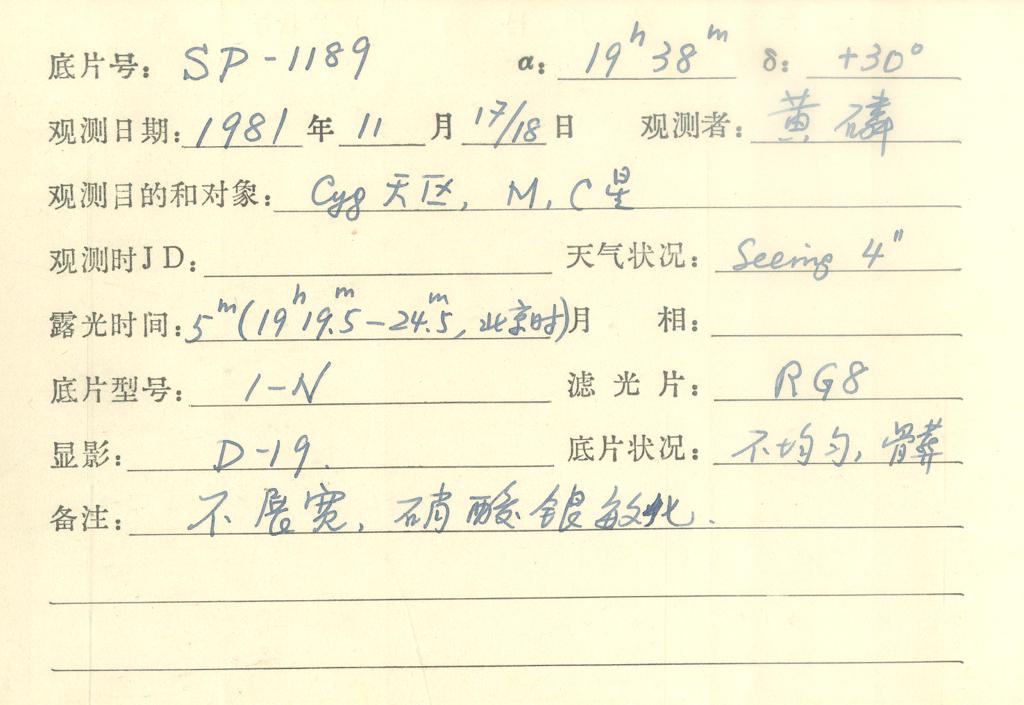 底片号: SP-1189 α: 19ʰ38ᵐ δ: +30°
观测日期: 1981 年 11 月 17/18 日 观测者: 黄磷
观测目的和对象: Cyg 天区, M, C 星
观测时JD: 天气状况: Seeing 4"
露光时间: 5ᵐ(19ʰ19ᵐ.5-24ᵐ.5, 北京时) 月 相:
底片型号: I-N 滤光片: RG8
显影: D-19. 底片状况: 不均匀, 骨葬
备注: 不展宽, 硝酸银敏化.